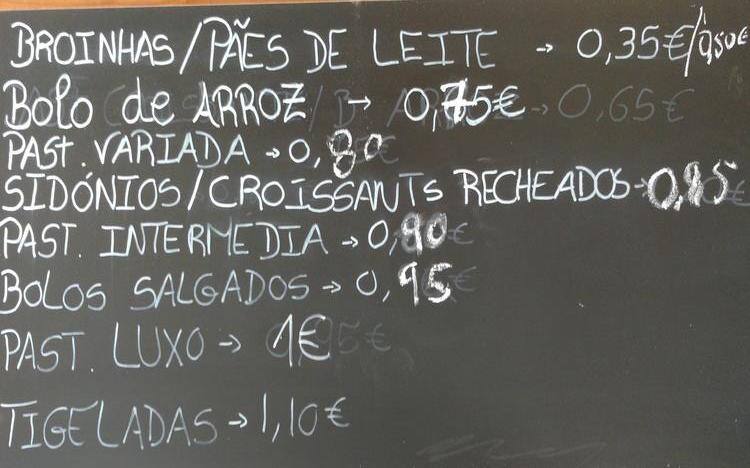 BROINHAS/PÃES DE LEITE → 0,35€/0,50€
Bolo de ARROZ → 0,75€
PAST. VARIADA → 0,80
SIDÓNIOS/CROISSANTS RECHEADOS → 0,85
PAST. INTERMEDIA → 0,90
BOLOS SALGADOS → 0,95
PAST. LUXO → 1€
TIGELADAS → 1,10€